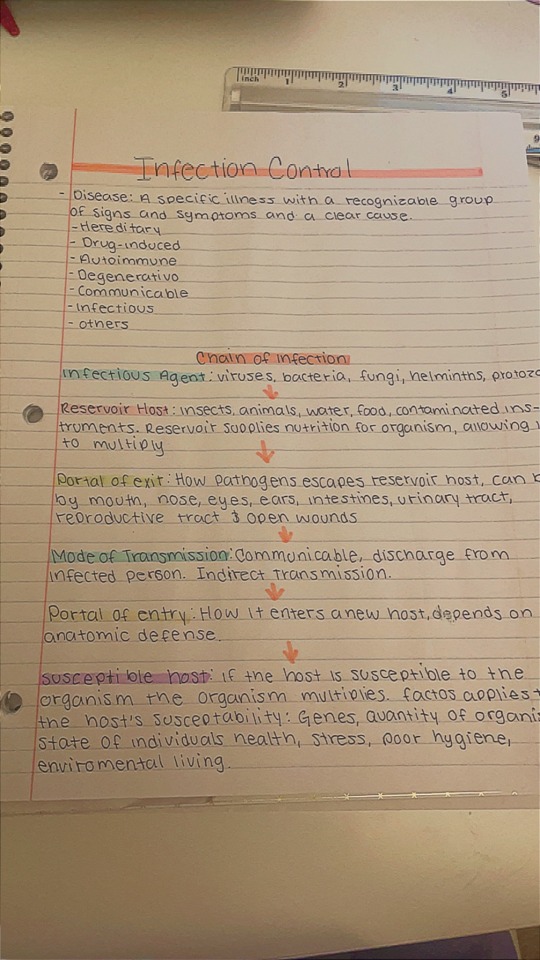 inch 1 2 3 4 5
9
Infection Control
- Disease: A specific illness with a recognizable group
of signs and symptoms and a clear cause.
- Hereditary
- Drug-induced
- Autoimmune
- Degenerativo
- Communicable
- Infectious
- others
Chain of infection
Infectious Agent: viruses, bacteria, fungi, helminths, protozo
Reservoir Host: insects, animals, water, food, contaminated ins-
truments. Reservoir supplies nutrition for organism, allowing
to multiply
Portal of exit: How pathogens escapes reservoir host, can b
by mouth, nose, eyes, ears, intestines, urinary tract,
reproductive tract & open wounds
Mode of Transmission: Communicable, discharge from
infected person. Indirect Transmission.
Portal of entry: How it enters a new host, depends on
anatomic defense.
susceptible host: if the host is susceptible to the
organism the organism multiplies. factos applies t
the host's susceptability: Genes, quantity of organis
state of individuals health, stress, poor hygiene,
enviromental living.